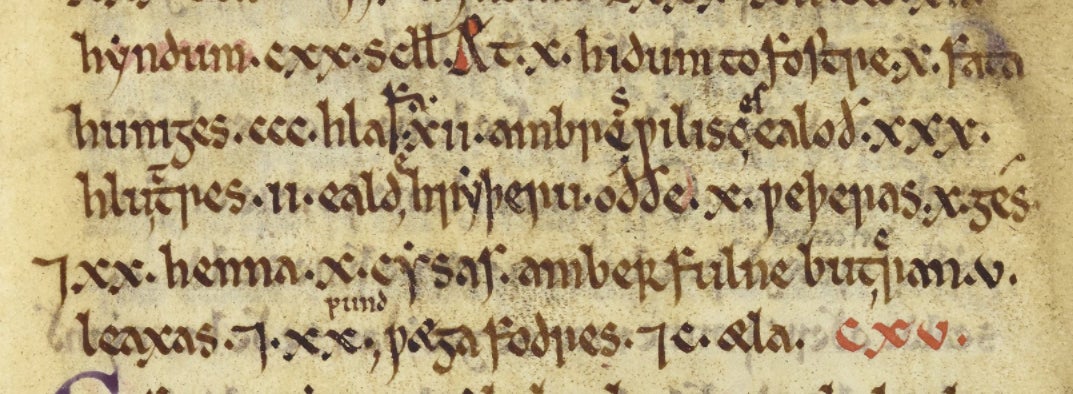 hyndum. cxx. scll. Æt .x. hidum to fostre .x. fata
huniges. ccc. hlafa. xii. ambres ƿilisces ealoð. xxx.
hluttres. ii. ealde hryþeru. oððe. x. ƿeþeras. x. gés.
⁊ xx. henna. x. cysas. amber fulne buteran. v.
leaxas. ⁊ .xx. pund ƿæga fodres. ⁊ c. æla. cxv.